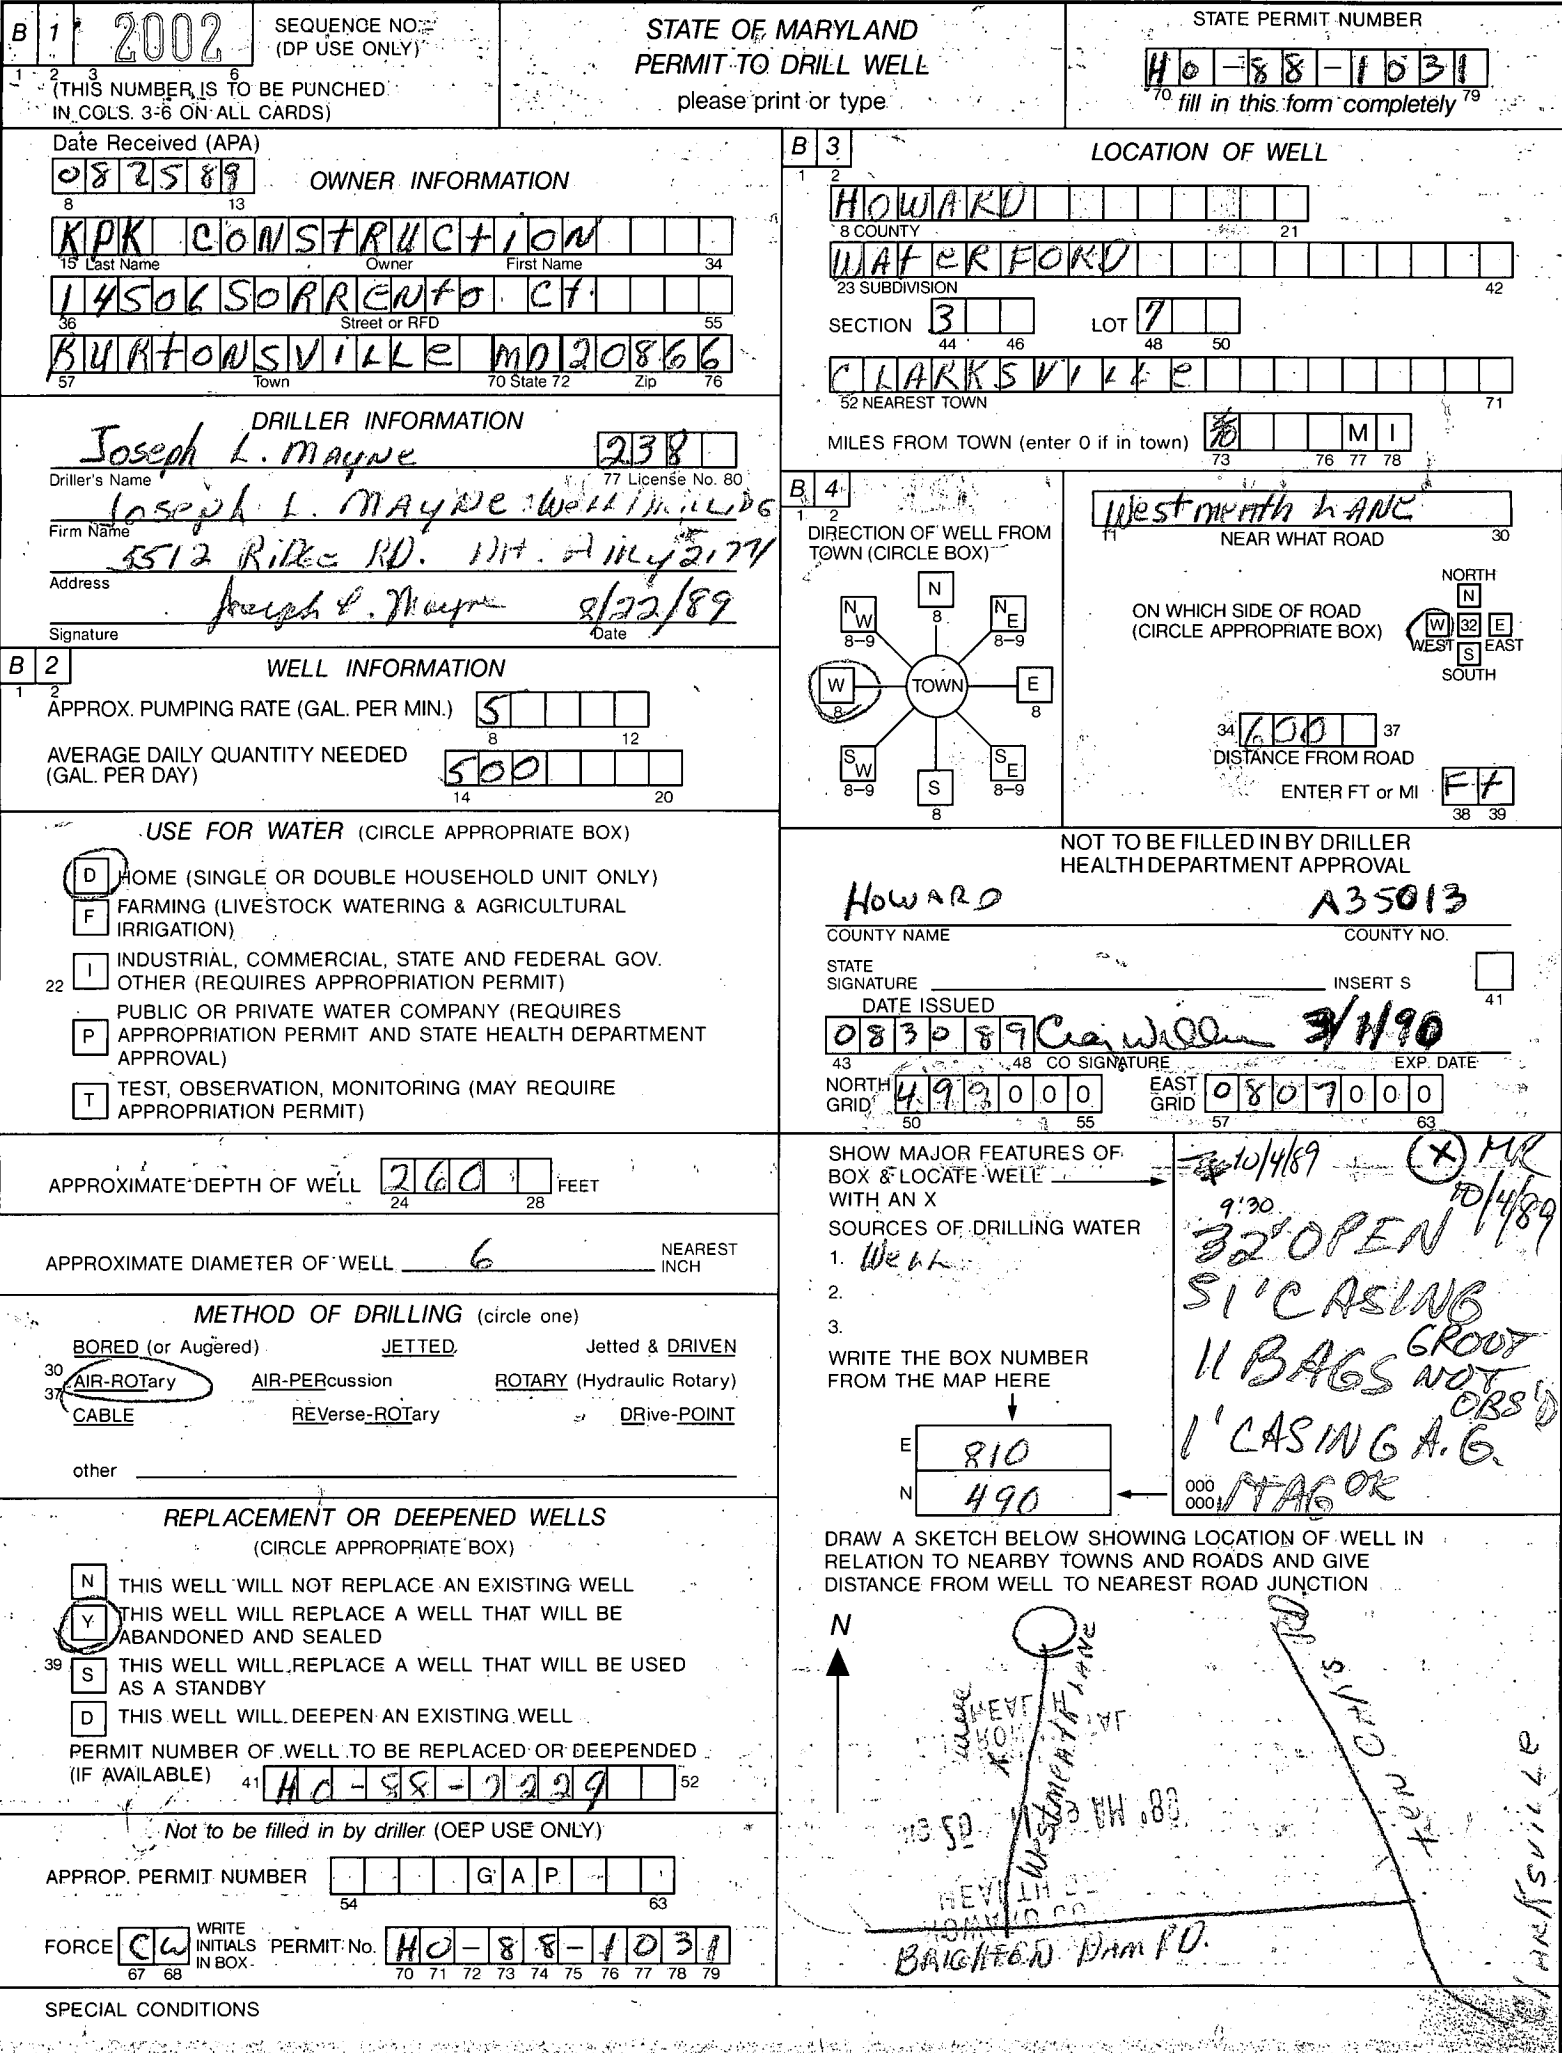 B 1 2002 SEQUENCE NO. (DP USE ONLY)
1 2 3 6
(THIS NUMBER IS TO BE PUNCHED
IN COLS. 3-6 ON ALL CARDS)
STATE OF MARYLAND
PERMIT TO DRILL WELL
please print or type
STATE PERMIT NUMBER
HO-88-1031
70 fill in this form completely 79
Date Received (APA)
082589
8 13
OWNER INFORMATION
KPK CONSTRUCTION
15 Last Name Owner First Name 34
14506 SORRENTO CT.
36 Street or RFD 55
BURTONSVILLE MD 20866
57 Town 70 State 72 Zip 76
DRILLER INFORMATION
Joseph L. Mayne 238
Driller's Name 77 License No. 80
Joseph L. Mayne Well Drilling
Firm Name
5512 Ridge RD. Mt. Airy 21771
Address
Joseph L. Mayne 8/22/89
Signature Date
B 2 WELL INFORMATION
1 2
APPROX. PUMPING RATE (GAL. PER MIN.) 5
8 12
AVERAGE DAILY QUANTITY NEEDED
(GAL. PER DAY) 500
14 20
USE FOR WATER (CIRCLE APPROPRIATE BOX)
D HOME (SINGLE OR DOUBLE HOUSEHOLD UNIT ONLY)
F FARMING (LIVESTOCK WATERING & AGRICULTURAL
IRRIGATION)
22 I INDUSTRIAL, COMMERCIAL, STATE AND FEDERAL GOV.
OTHER (REQUIRES APPROPRIATION PERMIT)
P PUBLIC OR PRIVATE WATER COMPANY (REQUIRES
APPROPRIATION PERMIT AND STATE HEALTH DEPARTMENT
APPROVAL)
T TEST, OBSERVATION, MONITORING (MAY REQUIRE
APPROPRIATION PERMIT)
APPROXIMATE DEPTH OF WELL 260 FEET
24 28
APPROXIMATE DIAMETER OF WELL 6 NEAREST
INCH
METHOD OF DRILLING (circle one)
BORED (or Augered) JETTED Jetted & DRIVEN
30 AIR-ROTary AIR-PERcussion ROTARY (Hydraulic Rotary)
37 CABLE REVerse-ROTary DRive-POINT
other
REPLACEMENT OR DEEPENED WELLS
(CIRCLE APPROPRIATE BOX)
N THIS WELL WILL NOT REPLACE AN EXISTING WELL
Y THIS WELL WILL REPLACE A WELL THAT WILL BE
ABANDONED AND SEALED
39 S THIS WELL WILL REPLACE A WELL THAT WILL BE USED
AS A STANDBY
D THIS WELL WILL DEEPEN AN EXISTING WELL
PERMIT NUMBER OF WELL TO BE REPLACED OR DEEPENED
(IF AVAILABLE) 41 52
Not to be filled in by driller (OEP USE ONLY)
APPROP. PERMIT NUMBER G A P
54 63
FORCE CW WRITE INITIALS IN BOX PERMIT No. HO-88-1031
67 68 70 71 72 73 74 75 76 77 78 79
SPECIAL CONDITIONS
B 3 LOCATION OF WELL
1 2
HOWARD
8 COUNTY 21
WATERFORD
23 SUBDIVISION 42
SECTION 3 LOT 7
44 46 48 50
CLARKSVILLE
52 NEAREST TOWN 71
MILES FROM TOWN (enter 0 if in town) M I
73 76 77 78
B 4
1 2
DIRECTION OF WELL FROM
TOWN (CIRCLE BOX)
N 8
NW 8-9 NE 8-9
W 8 TOWN E 8
SW 8-9 SE 8-9
S 8
Westmeath LANE
11 NEAR WHAT ROAD 30
ON WHICH SIDE OF ROAD
(CIRCLE APPROPRIATE BOX)
NORTH
N
W 32 E
WEST EAST
S
SOUTH
34 600 37
DISTANCE FROM ROAD
ENTER FT or MI Ft
38 39
NOT TO BE FILLED IN BY DRILLER
HEALTH DEPARTMENT APPROVAL
HOWARD A35013
COUNTY NAME COUNTY NO.
STATE
SIGNATURE INSERT S
41
DATE ISSUED
083089 Craig Williams 3/1/90
43 48 CO SIGNATURE EXP. DATE
NORTH GRID 499000 EAST GRID 0807000
50 55 57 63
SHOW MAJOR FEATURES OF
BOX & LOCATE WELL
WITH AN X
SOURCES OF DRILLING WATER
1. Well
2.
3.
WRITE THE BOX NUMBER
FROM THE MAP HERE
E 810
N 490
10/4/89 X MR
9:30 10/4/89
32' OPEN
51' CASING
11 BAGS GROUT
NOT OBS'D
1' CASING A.G.
000
000 TAG OK
DRAW A SKETCH BELOW SHOWING LOCATION OF WELL IN
RELATION TO NEARBY TOWNS AND ROADS AND GIVE
DISTANCE FROM WELL TO NEAREST ROAD JUNCTION
N
WESTMEATH LANE
TEN OAKS RD.
CLARKSVILLE
BRIGHTEN DAM RD.